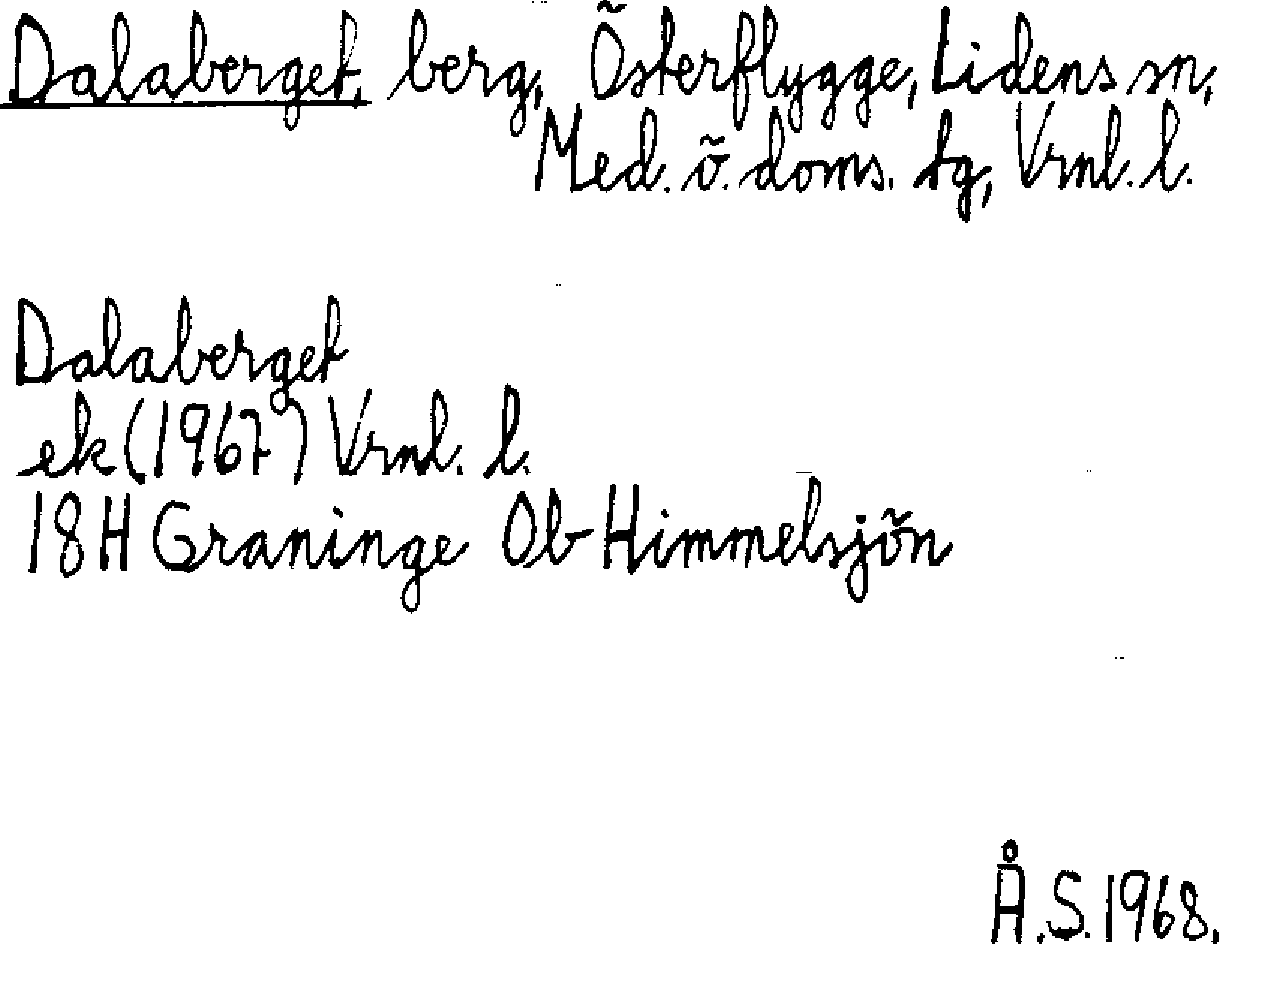 Dalaberget, berg, Österflygge, Lidens sn,
Med. ö. doms. tg, Vrnl. l.
Dalaberget
ek (1967) Vrnl. l.
18H Graninge Ob Himmelsjön
Å.S. 1968.